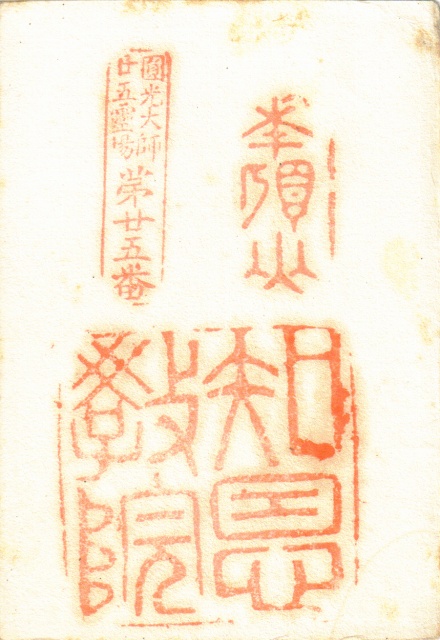 華頂山
圓光大師
廿五靈場
第廿五番
知恩
教院